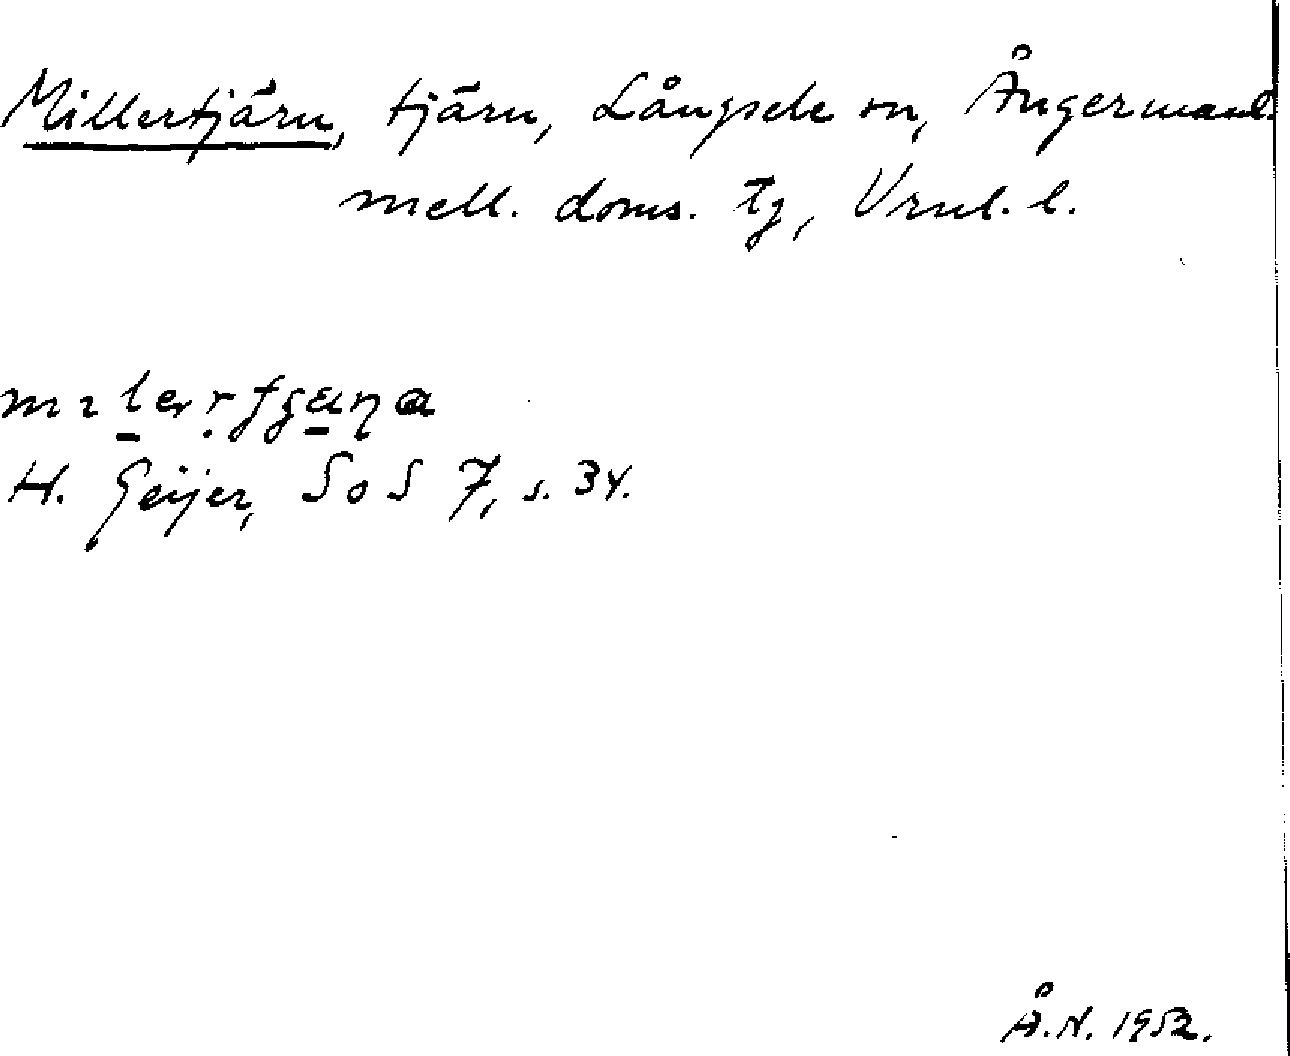 Millertjärn, tjärn, Långsele sn, Ångermanl.
mell. doms. tg, Vrnl. l.
H. Geijer, SoS 7, s. 34.
Å.N. 1952.